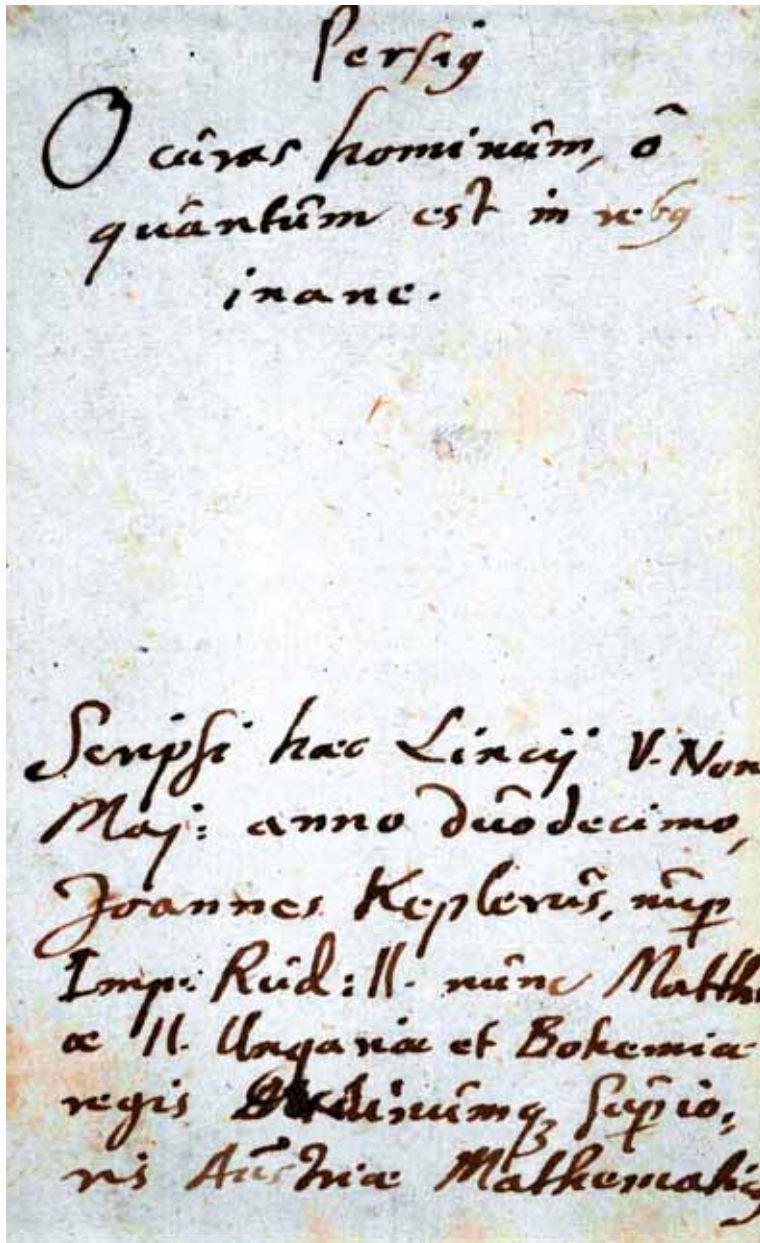 Persiꝰ
O curas hominum, ô
quantum est in rebꝰ
inane.
Scripsi haec Lincij V. Non
Maj: anno duodecimo,
Joannes Keplerus, nup
Imp: Rud: II. nunc Matthi
ae II. Ungariae et Bohemiae
regis Ordinumqꝫ supio,
ris Austriae Mathematicꝰ